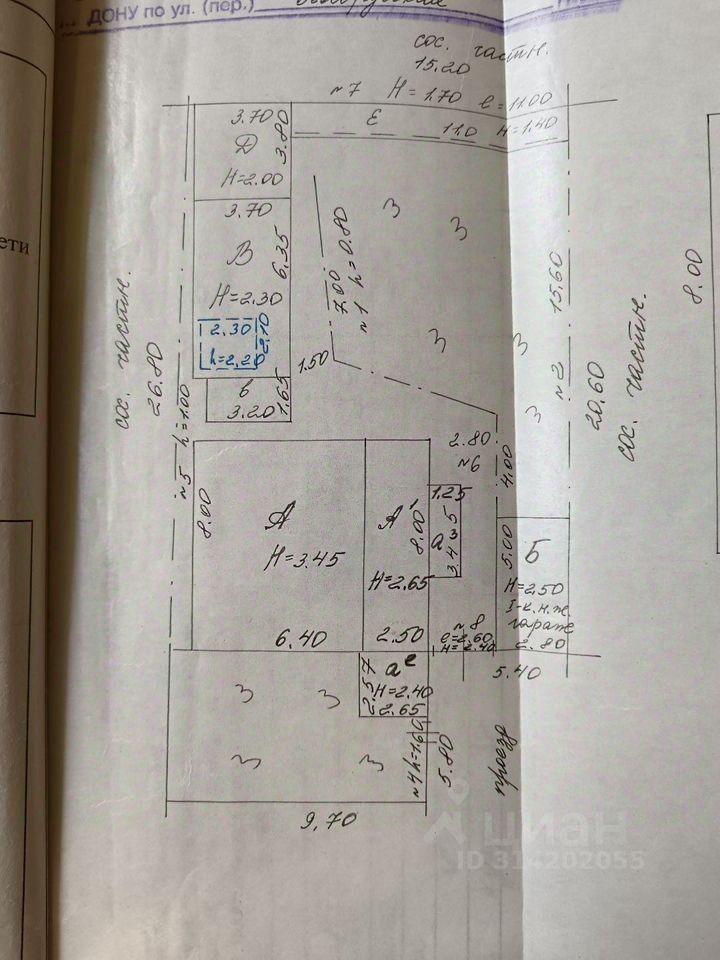 ДОНУ по ул. (пер.)
сос. частн.
15.20
№7 H=1.70 e=11.00
Е 11.0 H=1.40
3.70
Д 3.80
H=2.00
3.70
В 6.35
H=2.30
2.30 2.10
h=2.20
в
3.20 1.65
1.50
7.00
№1 h=0.80
З
З
З
З
З
№2 15.60
20.60
сос. частн.
8.00
ети
сос. частн.
26.80
№5 h=1.00
8.00
А
H=3.45
6.40
А¹
8.00
H=2.65
2.50
2.80
№6
4.00
1.25
а³
3.45
5.00
Б
H=2.50
I-к.н.ж.
гараж
2.80
№8
e=2.60
H=2.40
5.40
2.57
H=2.40
2.65
З
З
З
З
№4 h=1.60
5.80
проезд
9.70
циан
ID 314202055